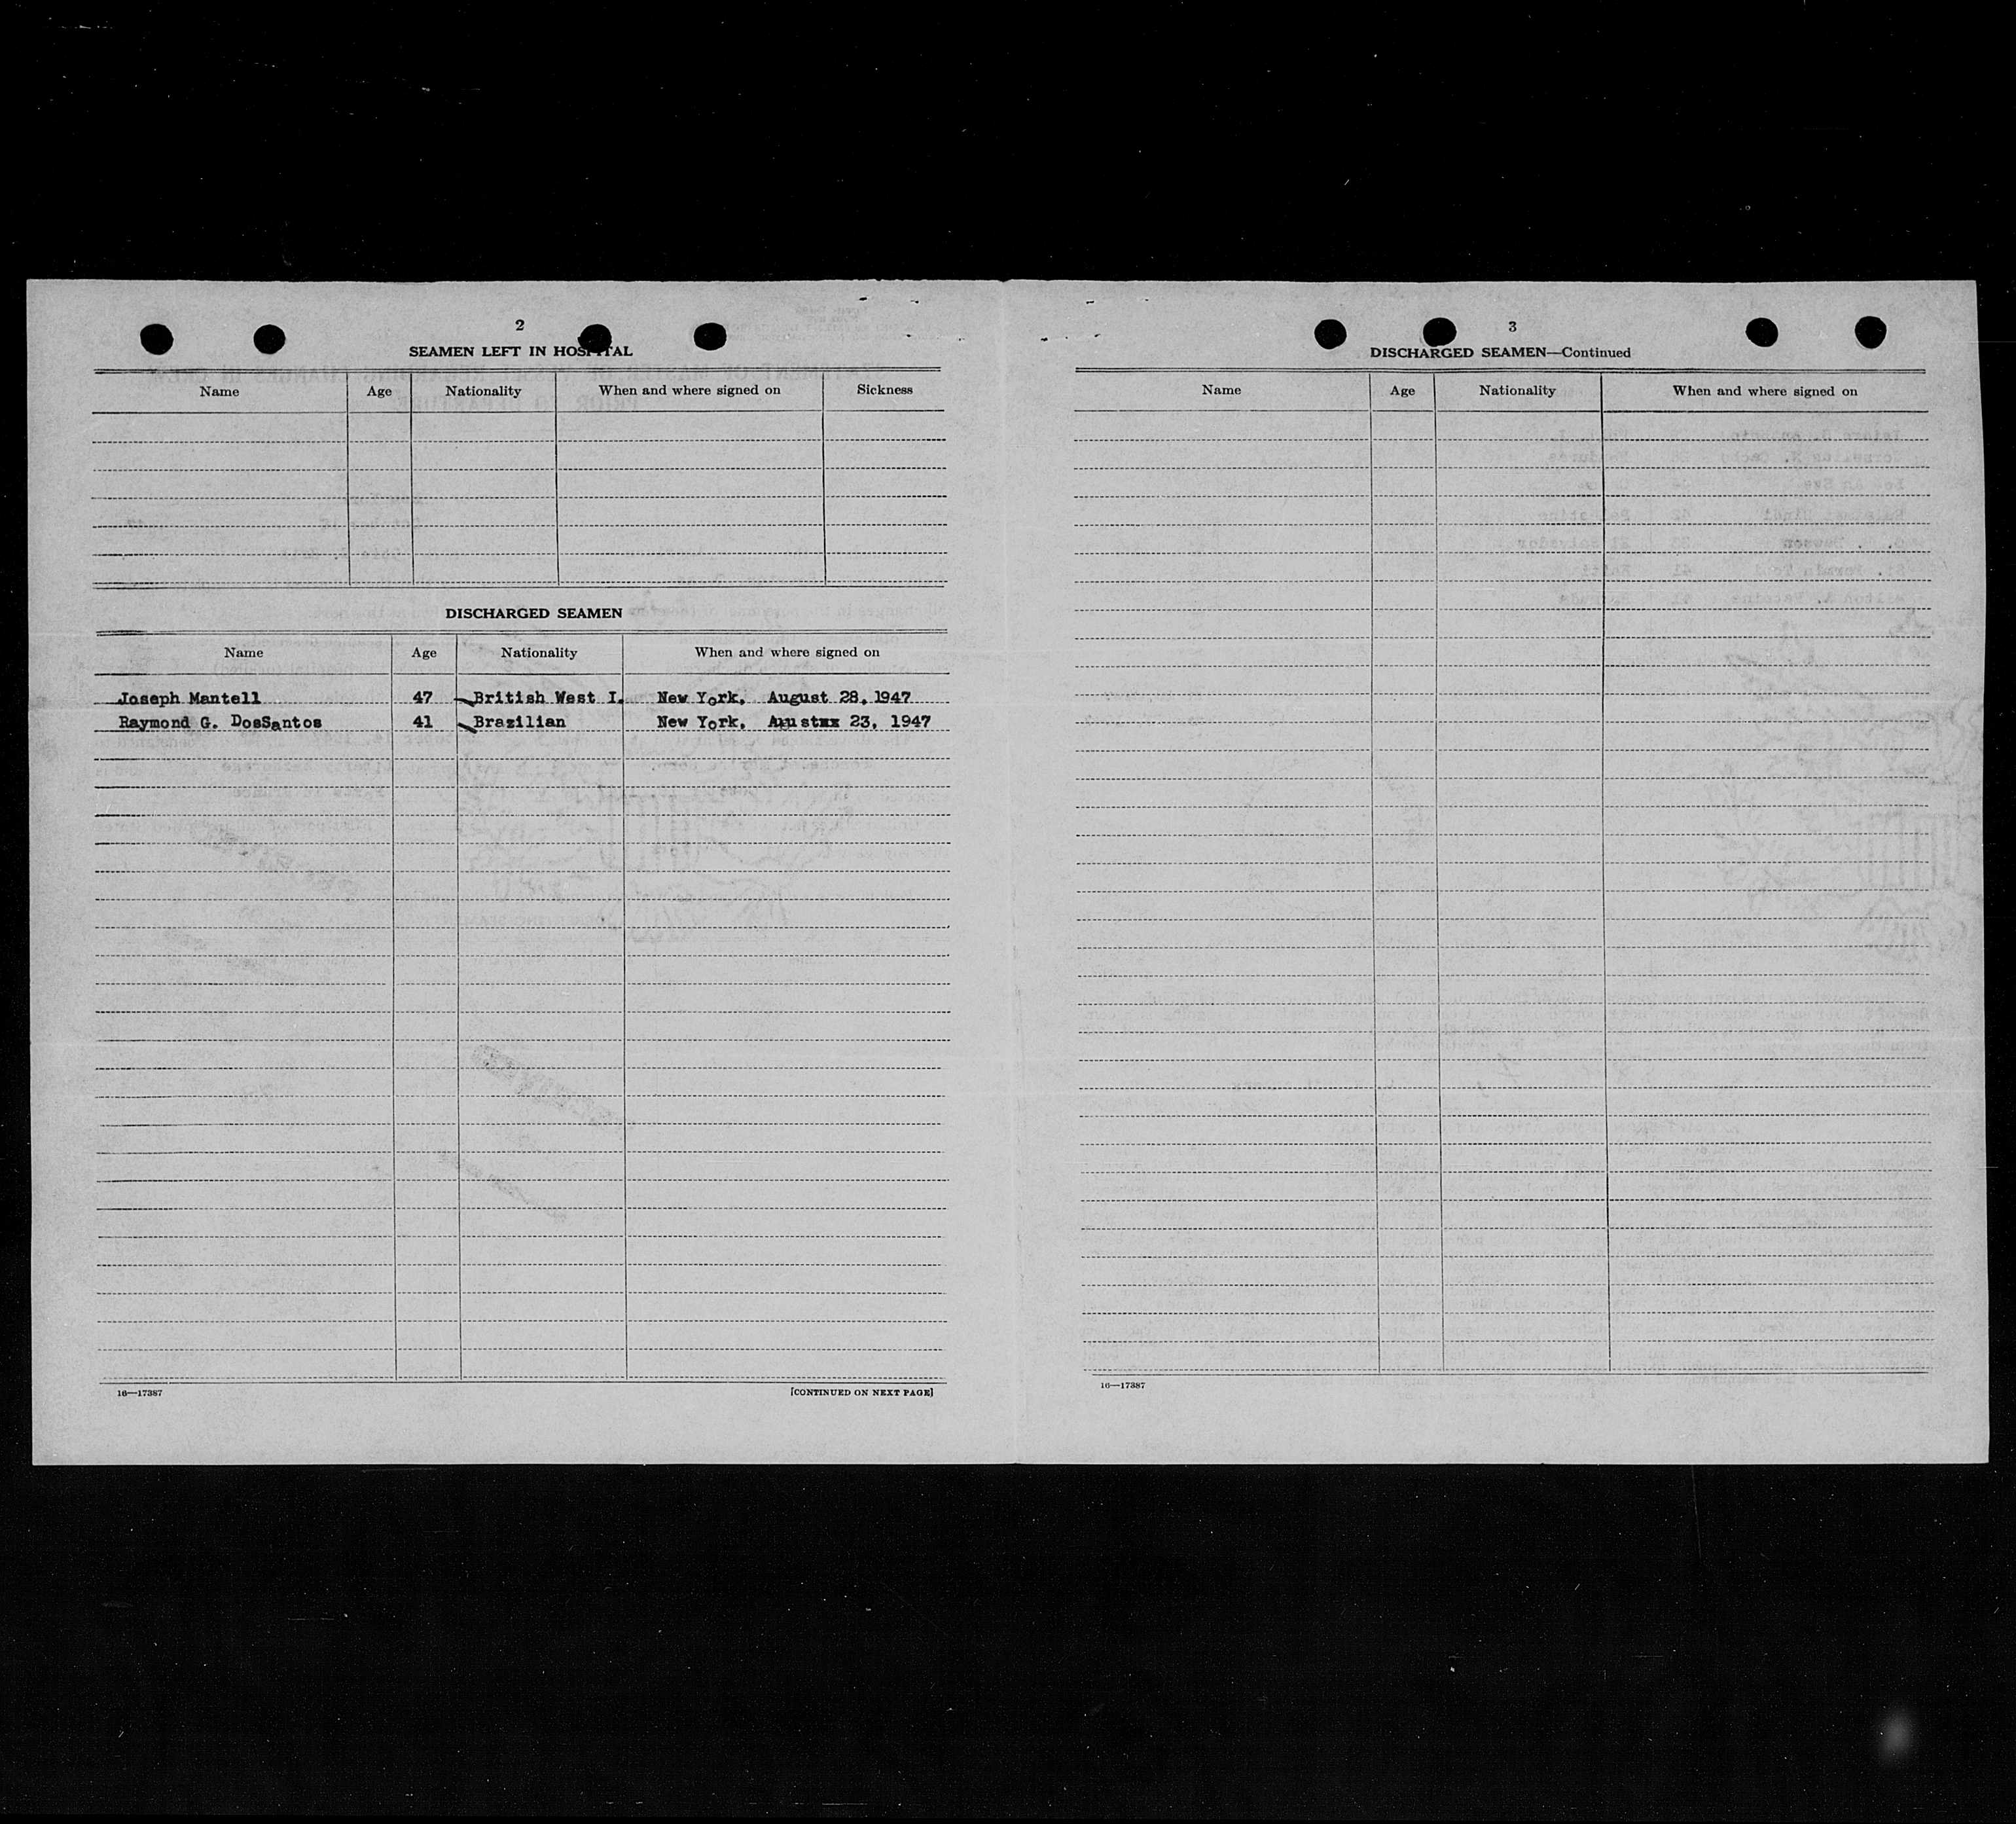 2
SEAMEN LEFT IN HOSPITAL
Name Age Nationality When and where signed on Sickness
DISCHARGED SEAMEN
Name Age Nationality When and where signed on
Joseph Mantell 47 British West I. New York, August 28, 1947
Raymond G. DosSantos 41 Brazilian New York, 23, 1947
16—17387 [CONTINUED ON NEXT PAGE]
3
DISCHARGED SEAMEN—Continued
Name Age Nationality When and where signed on
16—17387